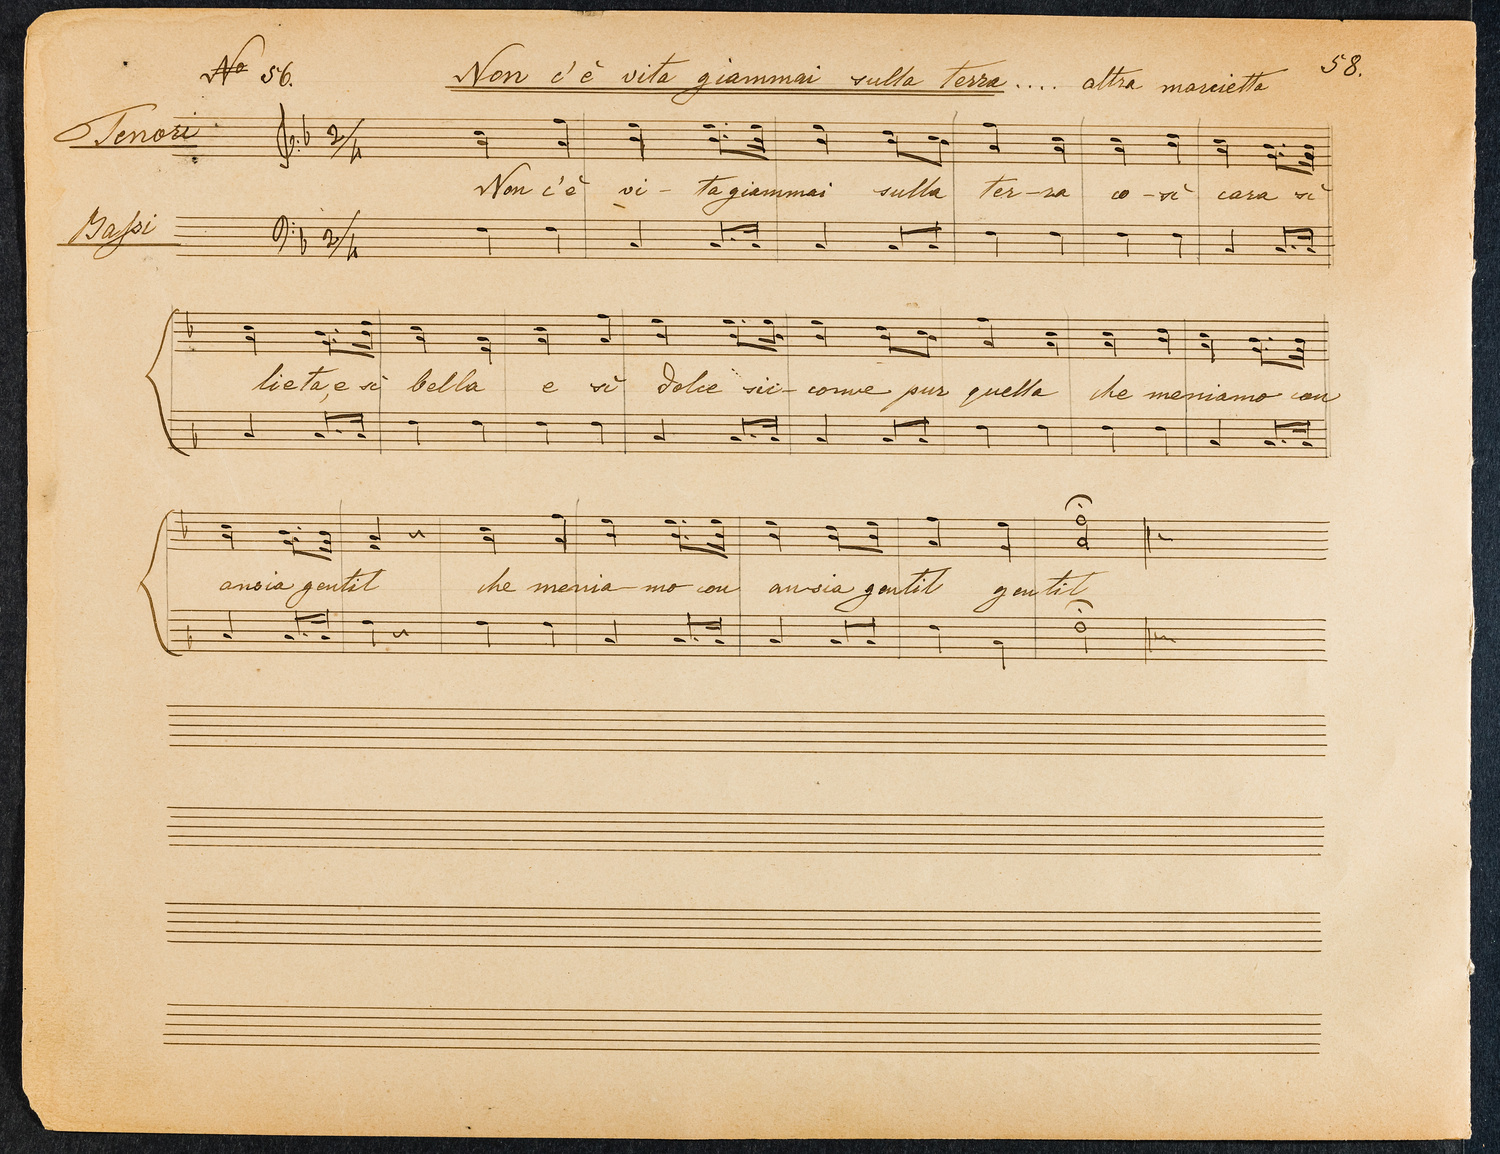 58.
No 56. Non c'è vita giammai sulla terra.... altra marcietta
Tenori
2/4
Non c'è vi-ta giammai sulla ter-ra co-sì cara sì
Bassi
2/4
lieta, e sì bella e sì dolce sic-come pur quella che meniamo con
ansia gentil che menia-mo con ansia gentil gentil